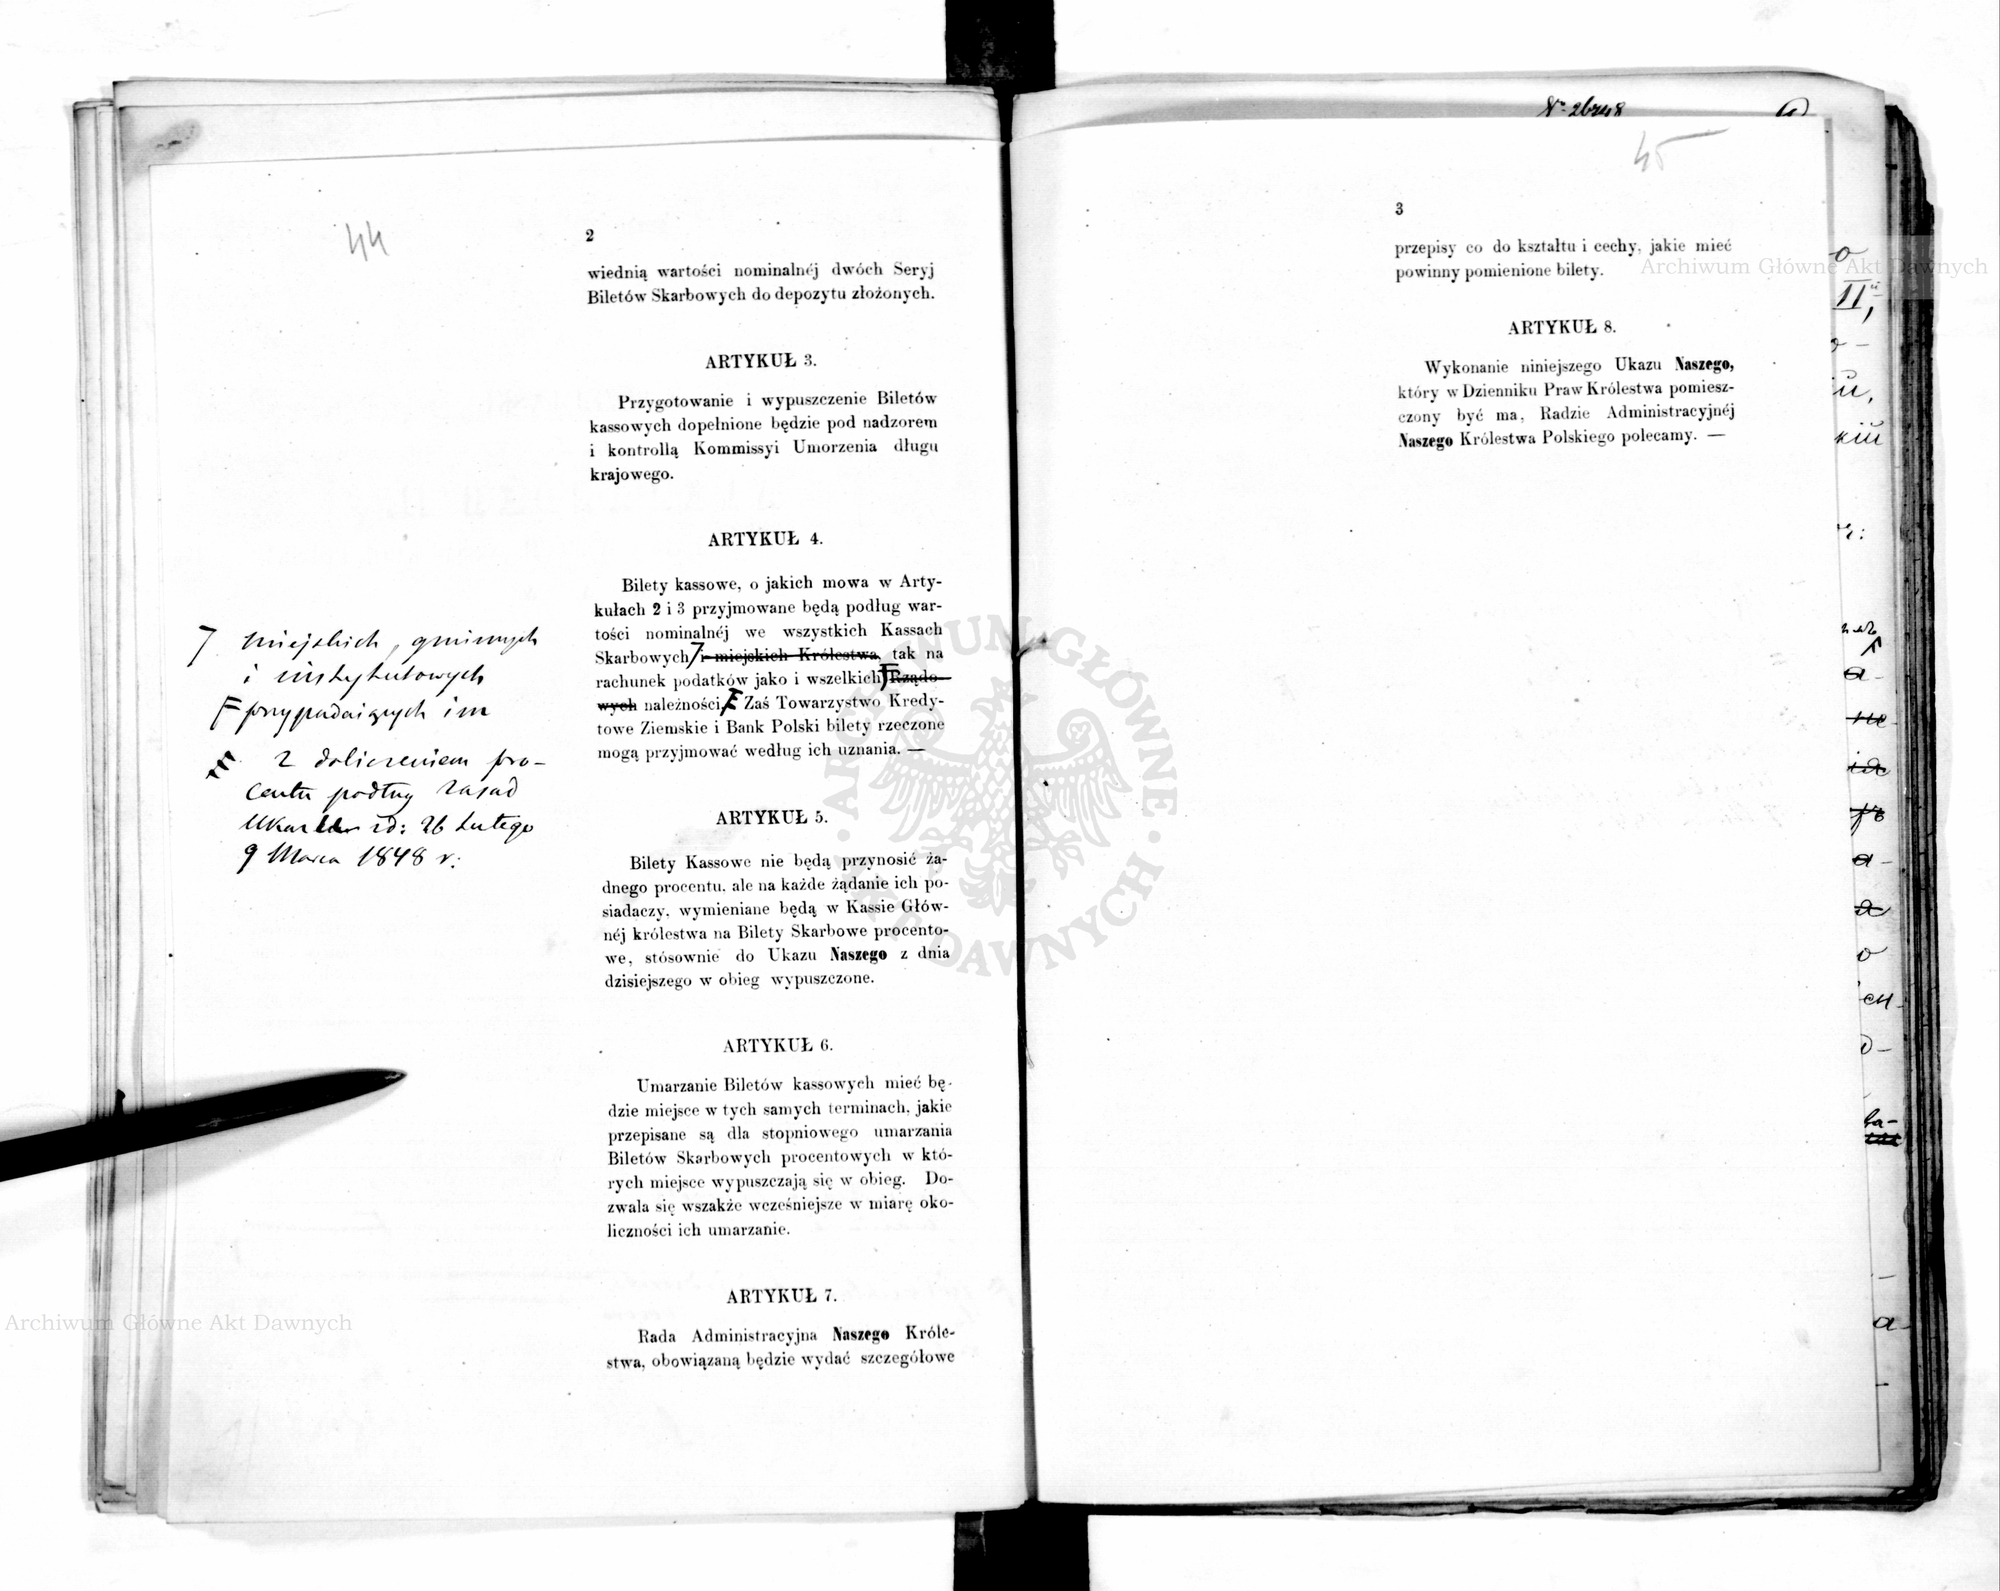 44
2
wiednią wartości nominalnéj dwóch Seryj
Biletów Skarbowych do depozytu złożonych.
ARTYKUŁ 3.
Przygotowanie i wypuszczenie Biletów
kassowych dopełnione będzie pod nadzorem
i kontrollą Kommissyi Umorzenia długu
krajowego.
ARTYKUŁ 4.
Bilety kassowe, o jakich mowa w Arty-
kułach 2 i 3 przyjmowane będą podług war-
tości nominalnéj we wszystkich Kassach
Skarbowych i miejskich Królestwa, tak na
rachunek podatków jako i wszelkich Rządo-
wych należności, Zaś Towarzystwo Kredy-
towe Ziemskie i Bank Polski bilety rzeczone
mogą przyjmować według ich uznania. —
miejskich, gminnych
i instytutowych
przypadających im
z doliczeniem pro-
centu podług zasad
Ukazu zd: 26 Lutego
9 Marca 1848 r:
ARTYKUŁ 5.
Bilety Kassowe nie będą przynosić ża-
dnego procentu, ale na każde żądanie ich po-
siadaczy, wymieniane będą w Kassie Głów-
néj królestwa na Bilety Skarbowe procento-
we, stósownie do Ukazu Naszego z dnia
dzisiejszego w obieg wypuszczone.
ARTYKUŁ 6.
Umarzanie Biletów kassowych mieć bę-
dzie miejsce w tych samych terminach, jakie
przepisane są dla stopniowego umarzania
Biletów Skarbowych procentowych w któ-
rych miejsce wypuszczają się w obieg. Do-
zwala się wszakże wcześniejsze w miarę oko-
liczności ich umarzanie.
ARTYKUŁ 7.
Rada Administracyjna Naszego Króle-
stwa, obowiązaną będzie wydać szczegółowe
45
3
przepisy co do kształtu i cechy, jakie mieć
powinny pomienione bilety.
ARTYKUŁ 8.
Wykonanie niniejszego Ukazu Naszego,
który w Dzienniku Praw Królestwa pomiesz-
czony być ma, Radzie Administracyjnéj
Naszego Królestwa Polskiego polecamy. —
Archiwum Główne Akt Dawnych
Archiwum Główne Akt Dawnych
ARCHIWUM GŁÓWNE AKT DAWNYCH